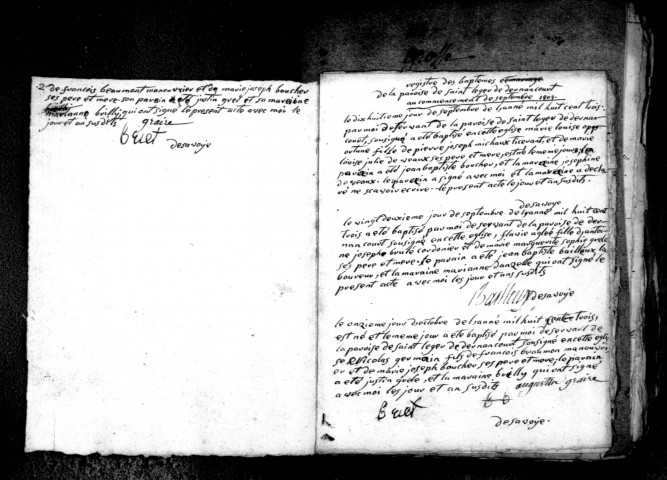 2 de francois beaumont manouvrier et de marie joseph boucher
ses pere et mere. son parain a été justin grel et sa maraine
marianne brilly, qui ont signé le present acte avec moi le
jour et an susdits. graire
Brlet
desavoye
registre des baptemes
de la paroise de saint leger de dernancourt
au commencement de septembre 1803.
le dix huitieme jour de septembre de l'année mil huit cent trois.
par moi deservant de la paroise de saint leger de dernan
court, sousigné a été baptisé en cette eglise marie louise opp
ortune fille de pierre joseph michaux et de marie
louise julie de veaux ses pere et mere, est née le meme jour, le
parain a été jean baptiste boucher, et la maraine josephine
deveaux. le parain a signé avec moi et la maraine a decla
ré ne scavoir ecrire. le present acte le jour et an susdits.
desavoye
le vingt deuxieme jour de septembre de l'année mil huit cent
trois a été baptisé par moi deservant de la paroise de der
nancourt sousigné en cette eglise, flavie aglaé fille d'antoi
ne joseph boule cordonier et de marie marguerite sophie grele
ses pere et mere. le parain a été jean baptiste bailleux la
boureur, et la maraine marianne danzelle qui ont signé le
present acte avec moi les jour et an susdits
Bailleux desavoye
le onzieme jour d'octobre de l'année mil huit cent trois,
est né et le meme jour a été baptisé par moi deservant de
la paroise de saint leger de dernancourt sousigné en cette egli
se Nicolas germain fils de francois beaumon manouvri
er et de marie joseph boucher ses pere et mere; le parain
a été justin grele, et la maraine brilly qui ont signé
avec moi les jour et an susdits augustin graire
Brlet
desavoye.